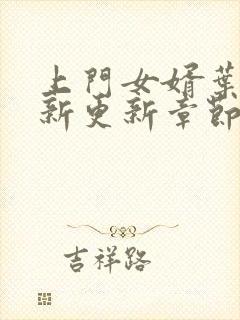 上門女婿葉
新更新章節
吉祥路